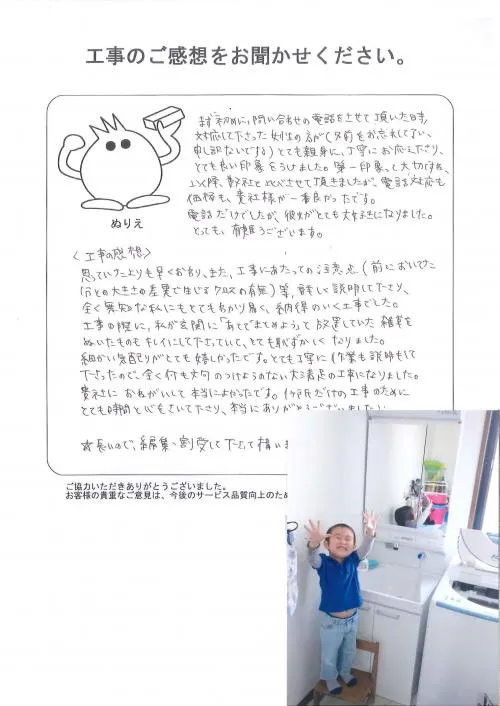 工事のご感想をお聞かせください。
まず初めに、問い合わせの電話をさせて頂いた時、
対応して下さった女性の方が(名前をお忘れしてしまい、
申し訳ないです)とても親身に、丁寧にお応え下さり、
とても良い印象をうけました。第一印象って大切ですね。
数社と比べさせて頂きましたが、電話対応も
価格も、貴社様が一番良かったです。
電話だけでしたが、彼女がとても大好きになりました。
とっても、有難うございます。
ぬりえ
〈工事の感想〉
思っていたよりも早くおわり、また、工事にあたっての注意点(前においてた
分との大きさの差異で生じるクロスの有無)等、詳しく説明して下さり、
全く無知な私にもとてもわかり易く、納得のいく工事でした。
工事の際に、私が玄関に「あとでまとめよう」って放置していた雑草を
ぬいたものもキレイにして下さっていて、とても恥ずかしくなりました。
細かい気配りがとても嬉しかったです。とても丁寧に作業も説明もして
下さったので、全く何も文句のつけようのない大満足の工事になりました。
貴社に おねがいして本当によかったです。1ヶ所だけの工事のために
とても時間と心をさいて下さり、本当にありがとうございました
☆長いので、編集・割愛して下さって構いま
ご協力いただきありがとうございました。
お客様の貴重なご意見は、今後のサービス品質向上のため